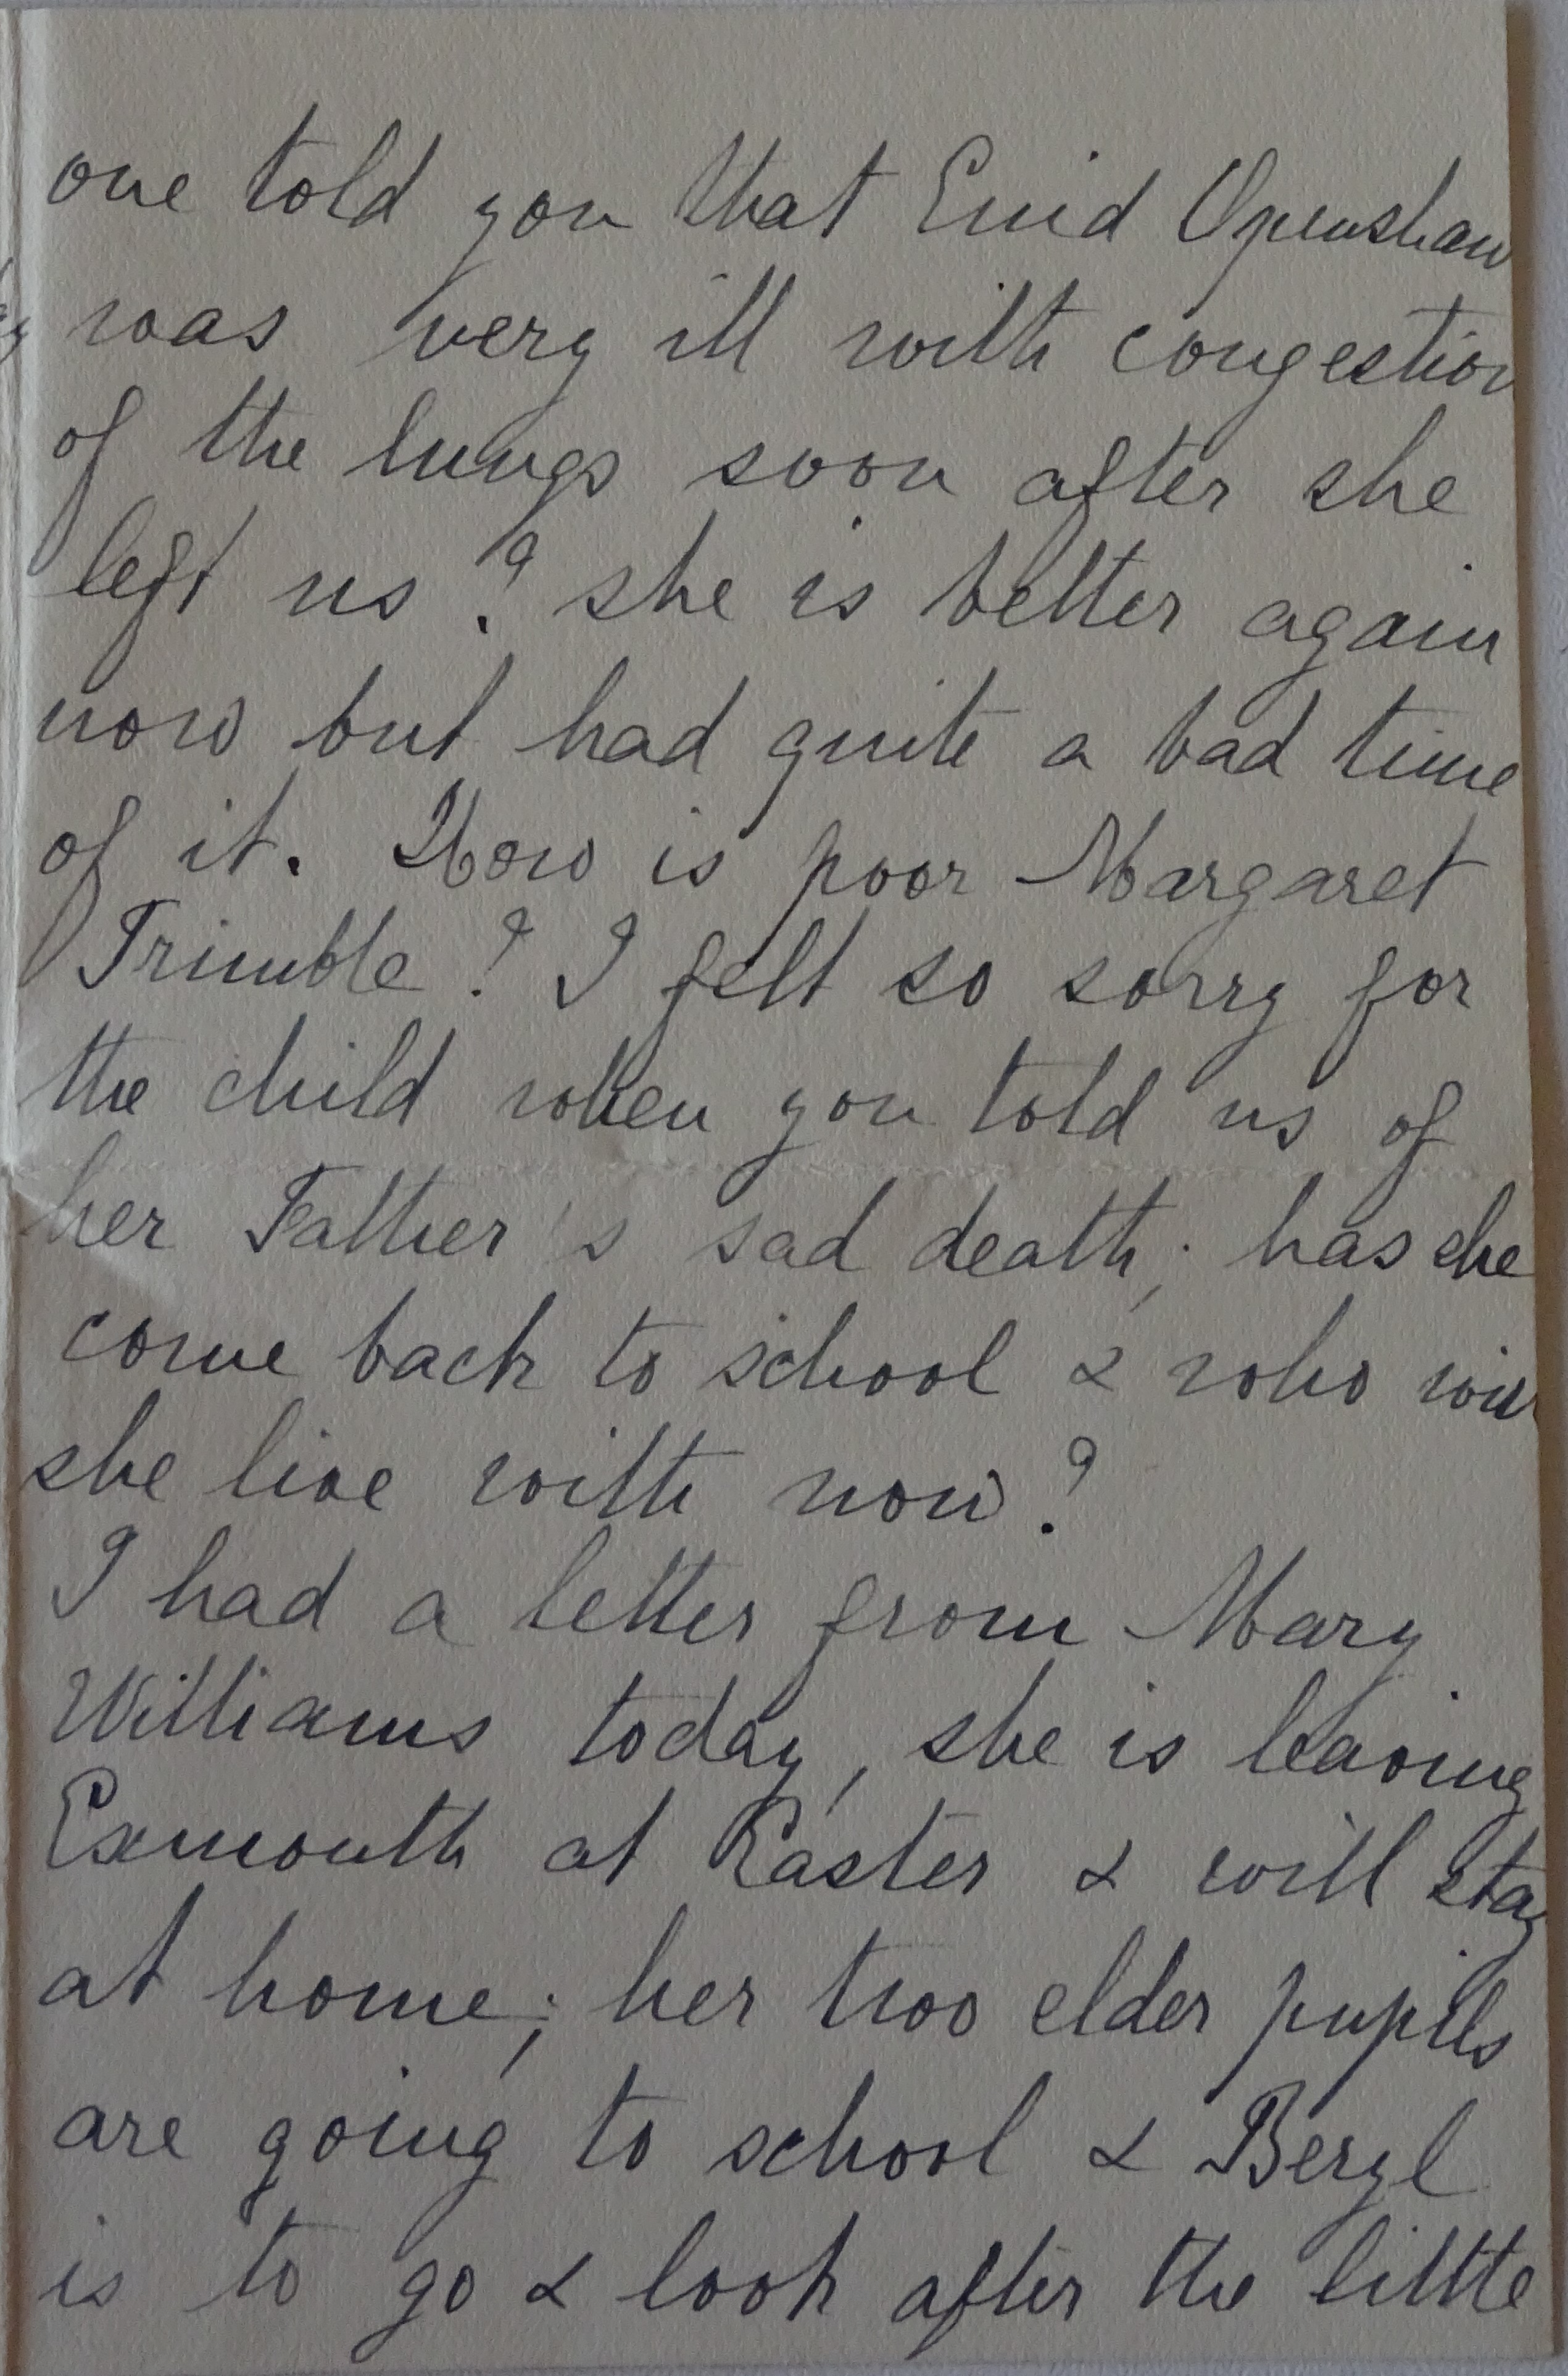 one told you that Enid Openshaw
was very ill with congestion
of the lungs soon after she
left us? she is better again
now but had quite a bad time
of it. How is poor Margaret
Trimble? I felt so sorry for
the child when you told us of
her Father's sad death; has she
come back to school & who will
she live with now?
I had a letter from Mary
Williams today, she is leaving
Exmouth at Easter & will stay
at home; her two elder pupils
are going to school & Beryl
is to go & look after the little